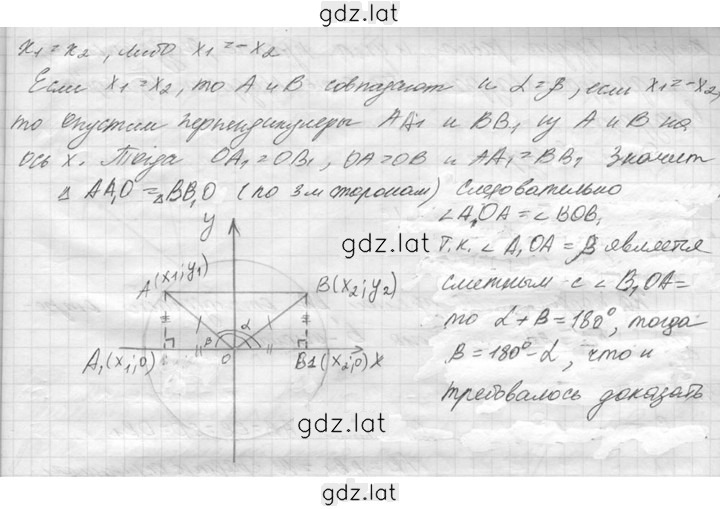 gdz.lat
x₁=x₂, либо x₁=-x₂
Если x₁=x₂, то A и B совпадают и α=β, если x₁=-x₂,
то опустим перпендикуляры AA₁ и BB₁ из A и B на
ось x. Тогда OA₁=OB₁, OA=OB и AA₁=BB₁ Значит
△AA₁O=△BB₁O (по 3м сторонам) Следовательно
∠A₁OA=∠BOB₁
т.к. ∠A₁OA=β является
смежным с ∠B₁OA=
то α+β=180°, тогда
β=180°-α, что и
требовалось доказать
y
A(x₁;y₁)
B(x₂;y₂)
gdz.lat
β
α
A₁(x₁;0)
O
B1(x₂;0)
x
gdz.lat
gdz.lat